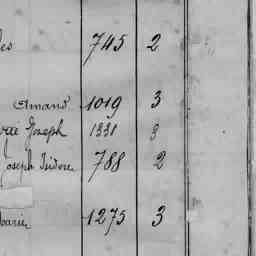 es 745 2
Amand 1019 3
Joseph 1331 3
Joseph Isidore 788 2
1275 3